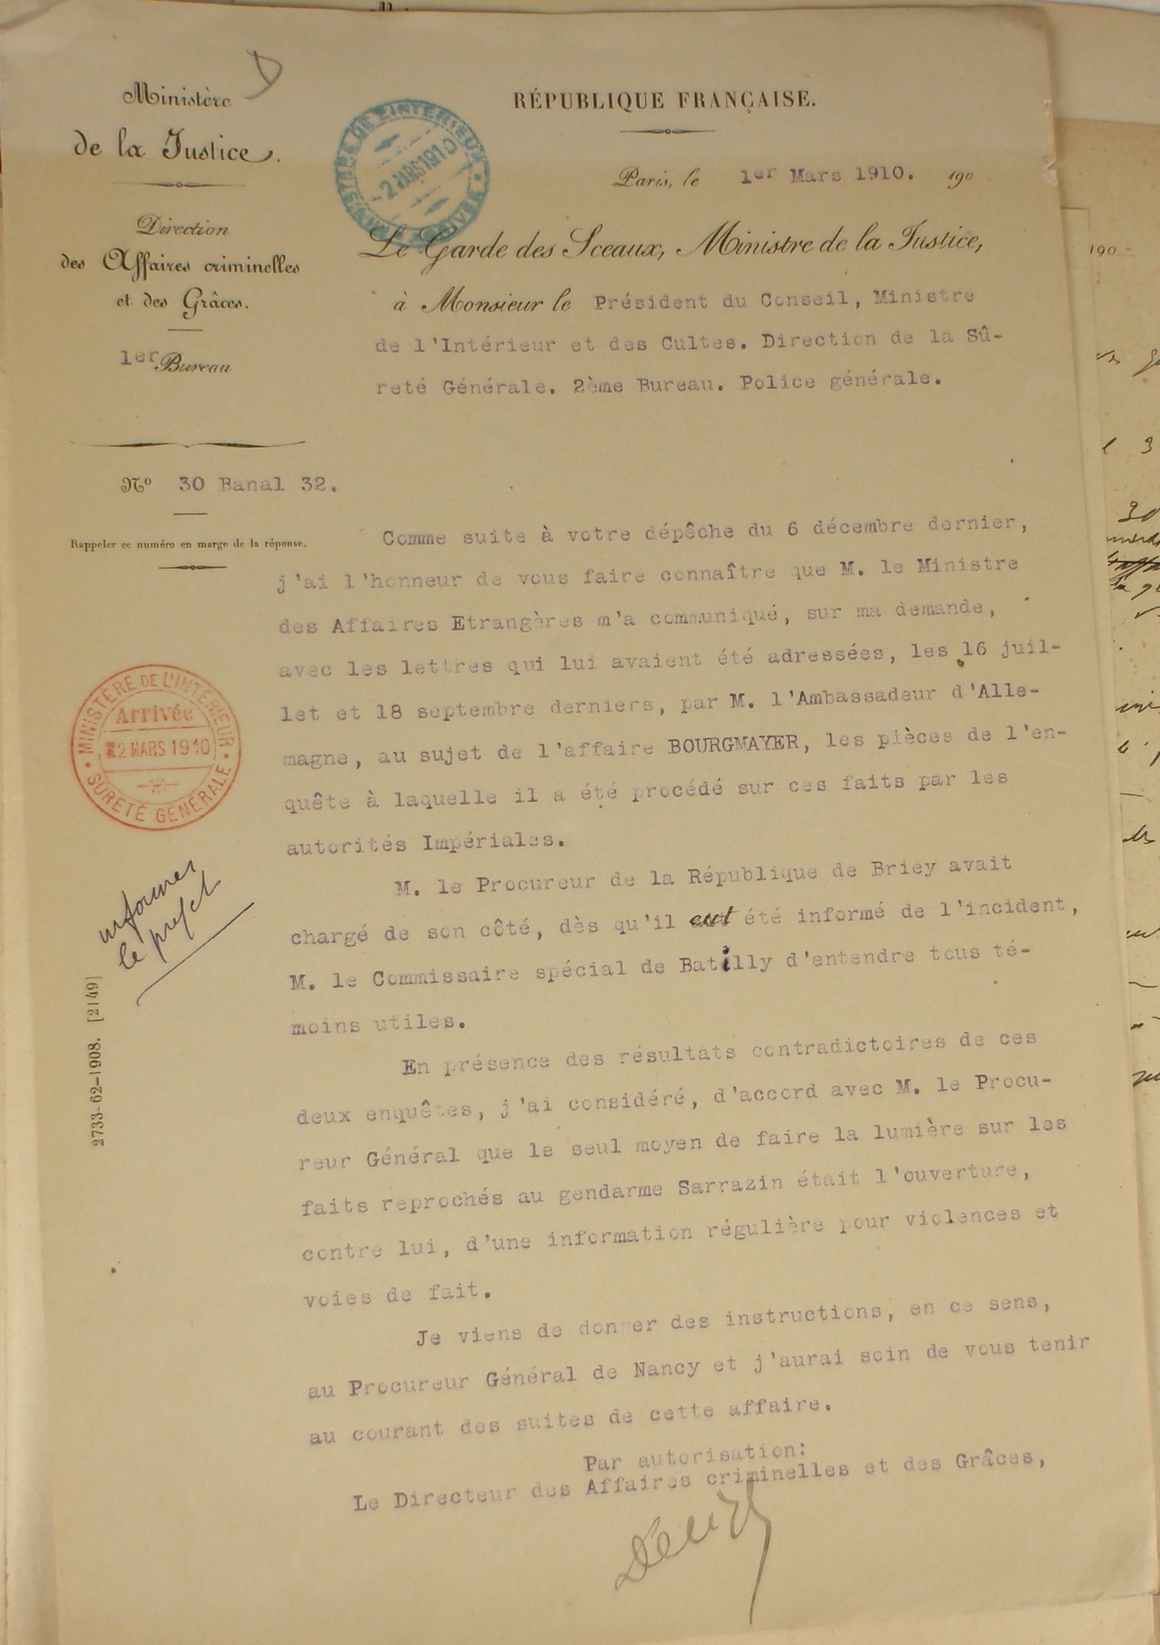 Ministère
de la Justice.
Direction
des Affaires criminelles
et des Grâces.
1er Bureau
Nº 30 Banal 32.
Rappeler ce numéro en marge de la réponse.
RÉPUBLIQUE FRANÇAISE.
2 MARS 1910
Paris, le 1er Mars 1910. 190
Le Garde des Sceaux, Ministre de la Justice,
à Monsieur le Président du Conseil, Ministre
de l'Intérieur et des Cultes. Direction de la Sû-
reté Générale. 2ème Bureau. Police générale.
Comme suite à votre dépêche du 6 décembre dernier,
j'ai l'honneur de vous faire connaître que M. le Ministre
des Affaires Etrangères m'a communiqué, sur ma demande,
avec les lettres qui lui avaient été adressées, les 16 juil-
let et 18 septembre derniers, par M. l'Ambassadeur d'Alle-
magne, au sujet de l'affaire BOURGMAYER, les pièces de l'en-
quête à laquelle il a été procédé sur ces faits par les
autorités Impériales.
M. le Procureur de la République de Briey avait
chargé de son côté, dès qu'il eut été informé de l'incident,
M. le Commissaire spécial de Batilly d'entendre tous té-
moins utiles.
En présence des résultats contradictoires de ces
deux enquêtes, j'ai considéré, d'accord avec M. le Procu-
reur Général que le seul moyen de faire la lumière sur les
faits reprochés au gendarme Sarrazin était l'ouverture,
contre lui, d'une information régulière pour violences et
voies de fait.
Je viens de donner des instructions, en ce sens,
au Procureur Général de Nancy et j'aurai soin de vous tenir
au courant des suites de cette affaire.
Par autorisation:
Le Directeur des Affaires criminelles et des Grâces,
MINISTÈRE DE L'INTÉRIEUR
Arrivée
2 MARS 1910
SÛRETÉ GÉNÉRALE
informer
le préfet
2733-62-1908. [2149]
190